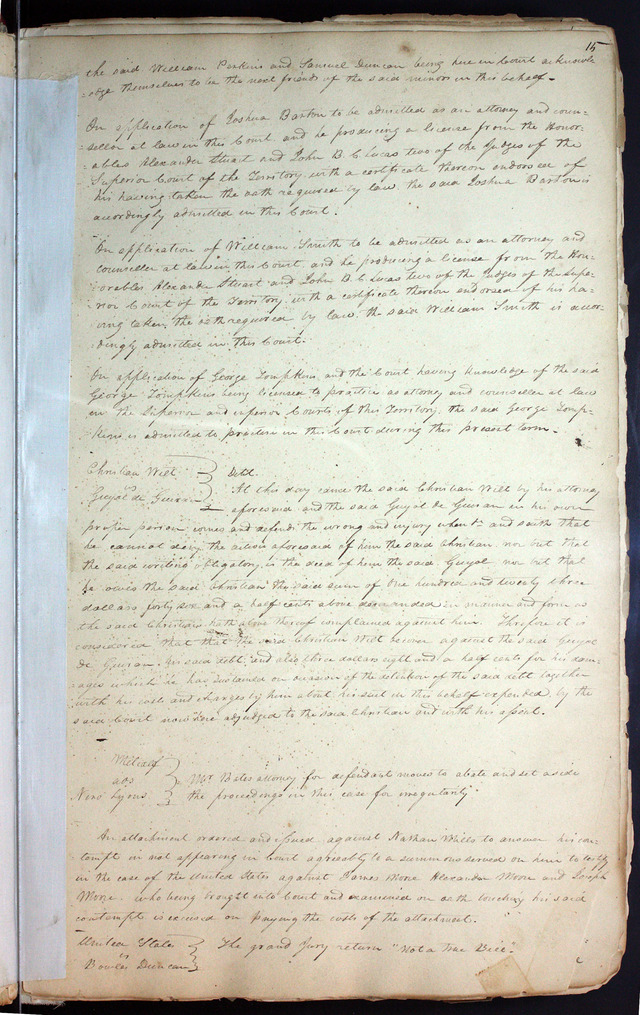 15
the said William Perkins and Samuel Duncan being here in Court acknowle
=edge themselves to be the next friends of the said minors in this behalf.
On application of Joshua Barton to be admitted as an attorney and coun=
=seller at law in this Court and he producing a license from the Honor=
=ables Alexander Stuart and John B. C. Lucas two of the Judges of the
Superior Court of the Territory with a certificate thereon endorsed of
his having taken the oath required by law the said Joshua Barton is
accordingly admitted in this Court.
On application of William Smith to be admitted as an attorney and
counseller at law in this Court and he producing a license from the Hon=
=orables Alexander Stuart and John B. C. Lucas two of the Judges of the Supe=
=rior Court of the Territory with a certificate thereon endorsed of his ha=
=ving taken the oath required by law the said William Smith is accor=
=dingly admitted in this Court.
On application of George Tompkins and the Court having knowledge of the said
George Tompkins being licensed to practice as attorney and counseller at law
in the Superior and inferior Courts of this Territory, the said George Tomp=
=kins is admitted to practise in this Court during this present term.
Christian Wilt
vs
Guyol de Guiran
Debt.
At this day came the said Christian Wilt by his attorney
aforesaid and the said Guyol de Guiran in his own
proper person comes and defends the wrong and injury when &c and saith that
he cannot deny the action aforesaid of him the said Christian nor but that
the said writing obligatory is the deed of him the said Guyol nor but that
he owes the said Christian the said sum of one hundred and twenty three
dollars forty six and a half cents above demanded in manner and form as
the said Christian hath above thereof complained against him. Therefore it is
considered that that the said Christian Wilt recover against the said Guyol
de Guiran his said debt, and also three dollars eight and a half cents for his dam=
=ages which he has sustained on occasion of the detention of the said debt together
with his costs and charges by him about his suit in this behalf expended by the
said Court now here adjudged to the said Christian and with his assent.
ads
Lyons
Mr. Bates attorney for defendant moves to abate and set aside
the proceedings in this case for irregularity.
An attachment ordered and issued against Nathan Wills to answer his con=
tempt in not appearing in Court agreeably to a summons served on him to testify
in the case of the United States against James Morse Alexander Morse and Joseph
Morse. who being brought into Court and examined on oath touching his said
contempt is excused on paying the costs of the attachment.
United States
vs
Bowles Duncan
The grand Jury return "Not a true Bill".